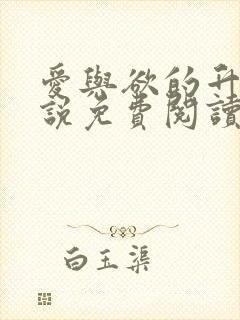 愛與欲的升
說免費閱讀
白玉渠